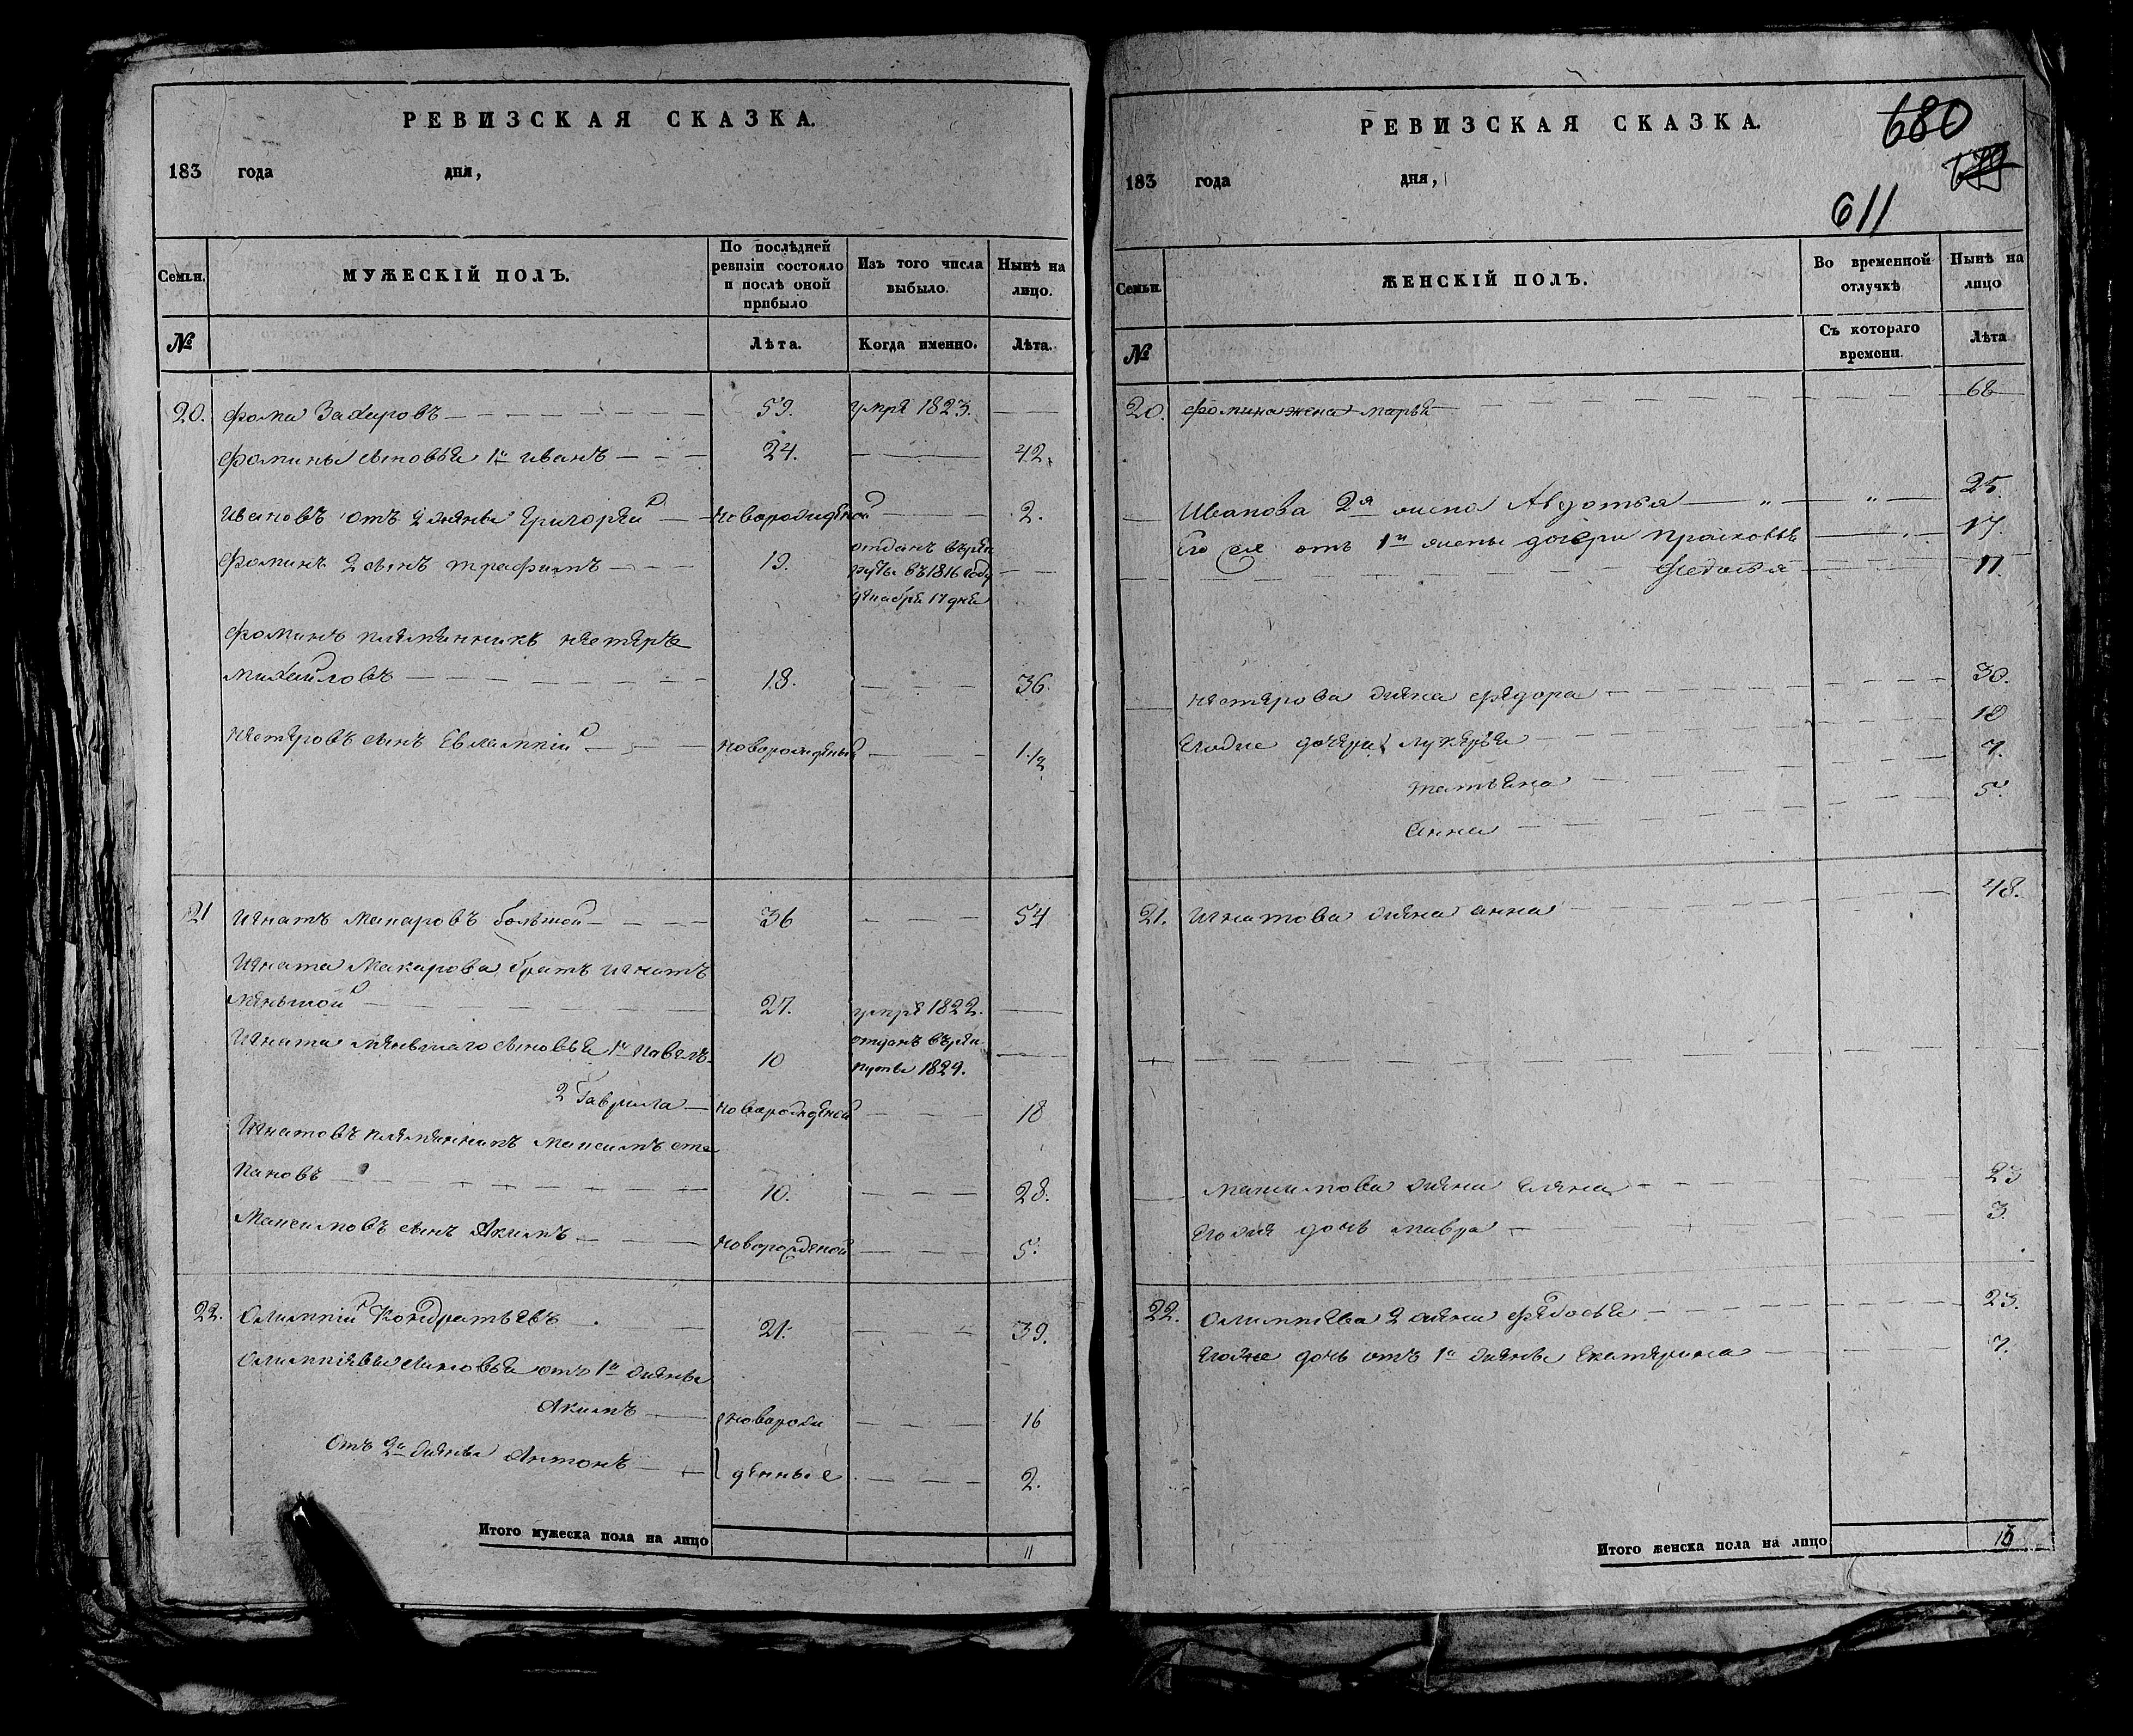 РЕВИЗСКАЯ СКАЗКА.
183 года дня,
Семьи. МУЖЕСКІЙ ПОЛЪ. По послѣдней ревизіи состояло и послѣ оной прибыло Изъ того числа выбыло. Нынѣ на лицо.
№ Лѣта. Когда именно. Лѣта.
20. Фома Захаровъ 59. умре 1823.
Фомины сыновья 1й иванъ 24. 42.
Ивановъ отъ 2 жены Григорей новорожденой 2.
Фоминъ 2 сынъ трафимъ 19. отданъ врек
руты въ 1816 году
декабря 17 дня
Фоминъ племянникъ нестеръ
михайловъ 18. 36.
Нестеровъ сынъ Евлампій новорожденый 1 1/2
21 Игнатъ Макаровъ большой 36 54
Игната Макарова братъ игнатъ
меньшой 27. умре 1822.
Игната меньшаго сыновья 1й павелъ 10 отданъ врек
руты 1829.
2 Гаврила новорожденой 18
Игнатовъ племянникъ Максимъ сте
пановъ 10. 28.
Максимовъ сынъ Акимъ новорожденой 5.
22. Олимпій Кондратьевъ 21. 39.
Олимпіевы сыновья отъ 1й жены
Акимъ новорож 16
Отъ 2й жены Антонъ денные 2.
Итого мужеска пола на лицо 11
РЕВИЗСКАЯ СКАЗКА.
680
611
183 года дня,
Семьи. ЖЕНСКІЙ ПОЛЪ. Во временной отлучкѣ Нынѣ на лицо
№ Съ котораго времени. Лѣта
20. Фомина жена марья 68
Иванова 2я жена Авдотья 25.
Его же отъ 1й жены дочери прасковья 17.
Федосья 11.
нестерова жена федора 30.
Егоже дочери лукерья 10
татьяна 7.
Анна 5.
21. Игнатова жена анна 48.
максимова жена Елена 23
Егоже дочь мавра 3.
22. Олимпіева 2 жена федосья 23.
Егоже дочь отъ 1й жены Екатерина 7.
Итого женска пола на лицо